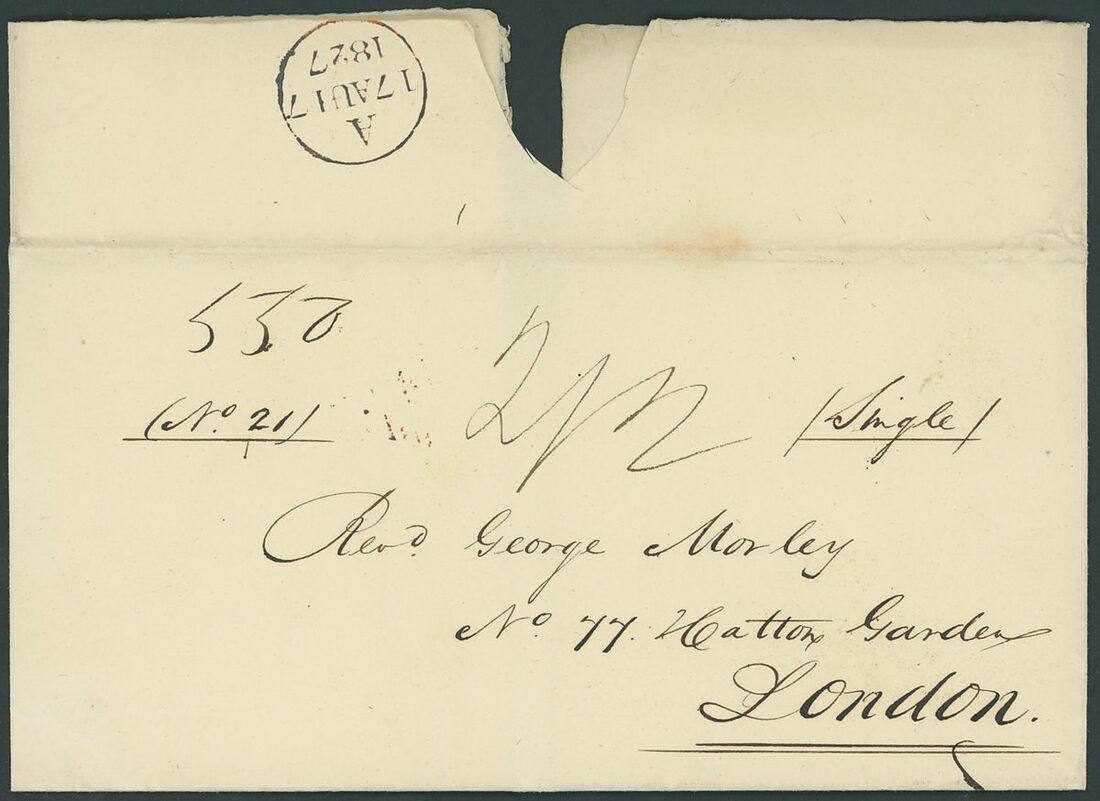 A
17AU17
1827
2/2
(No. 21)
(Single)
Revd. George Morley
No. 77. Hatton Garden
London.